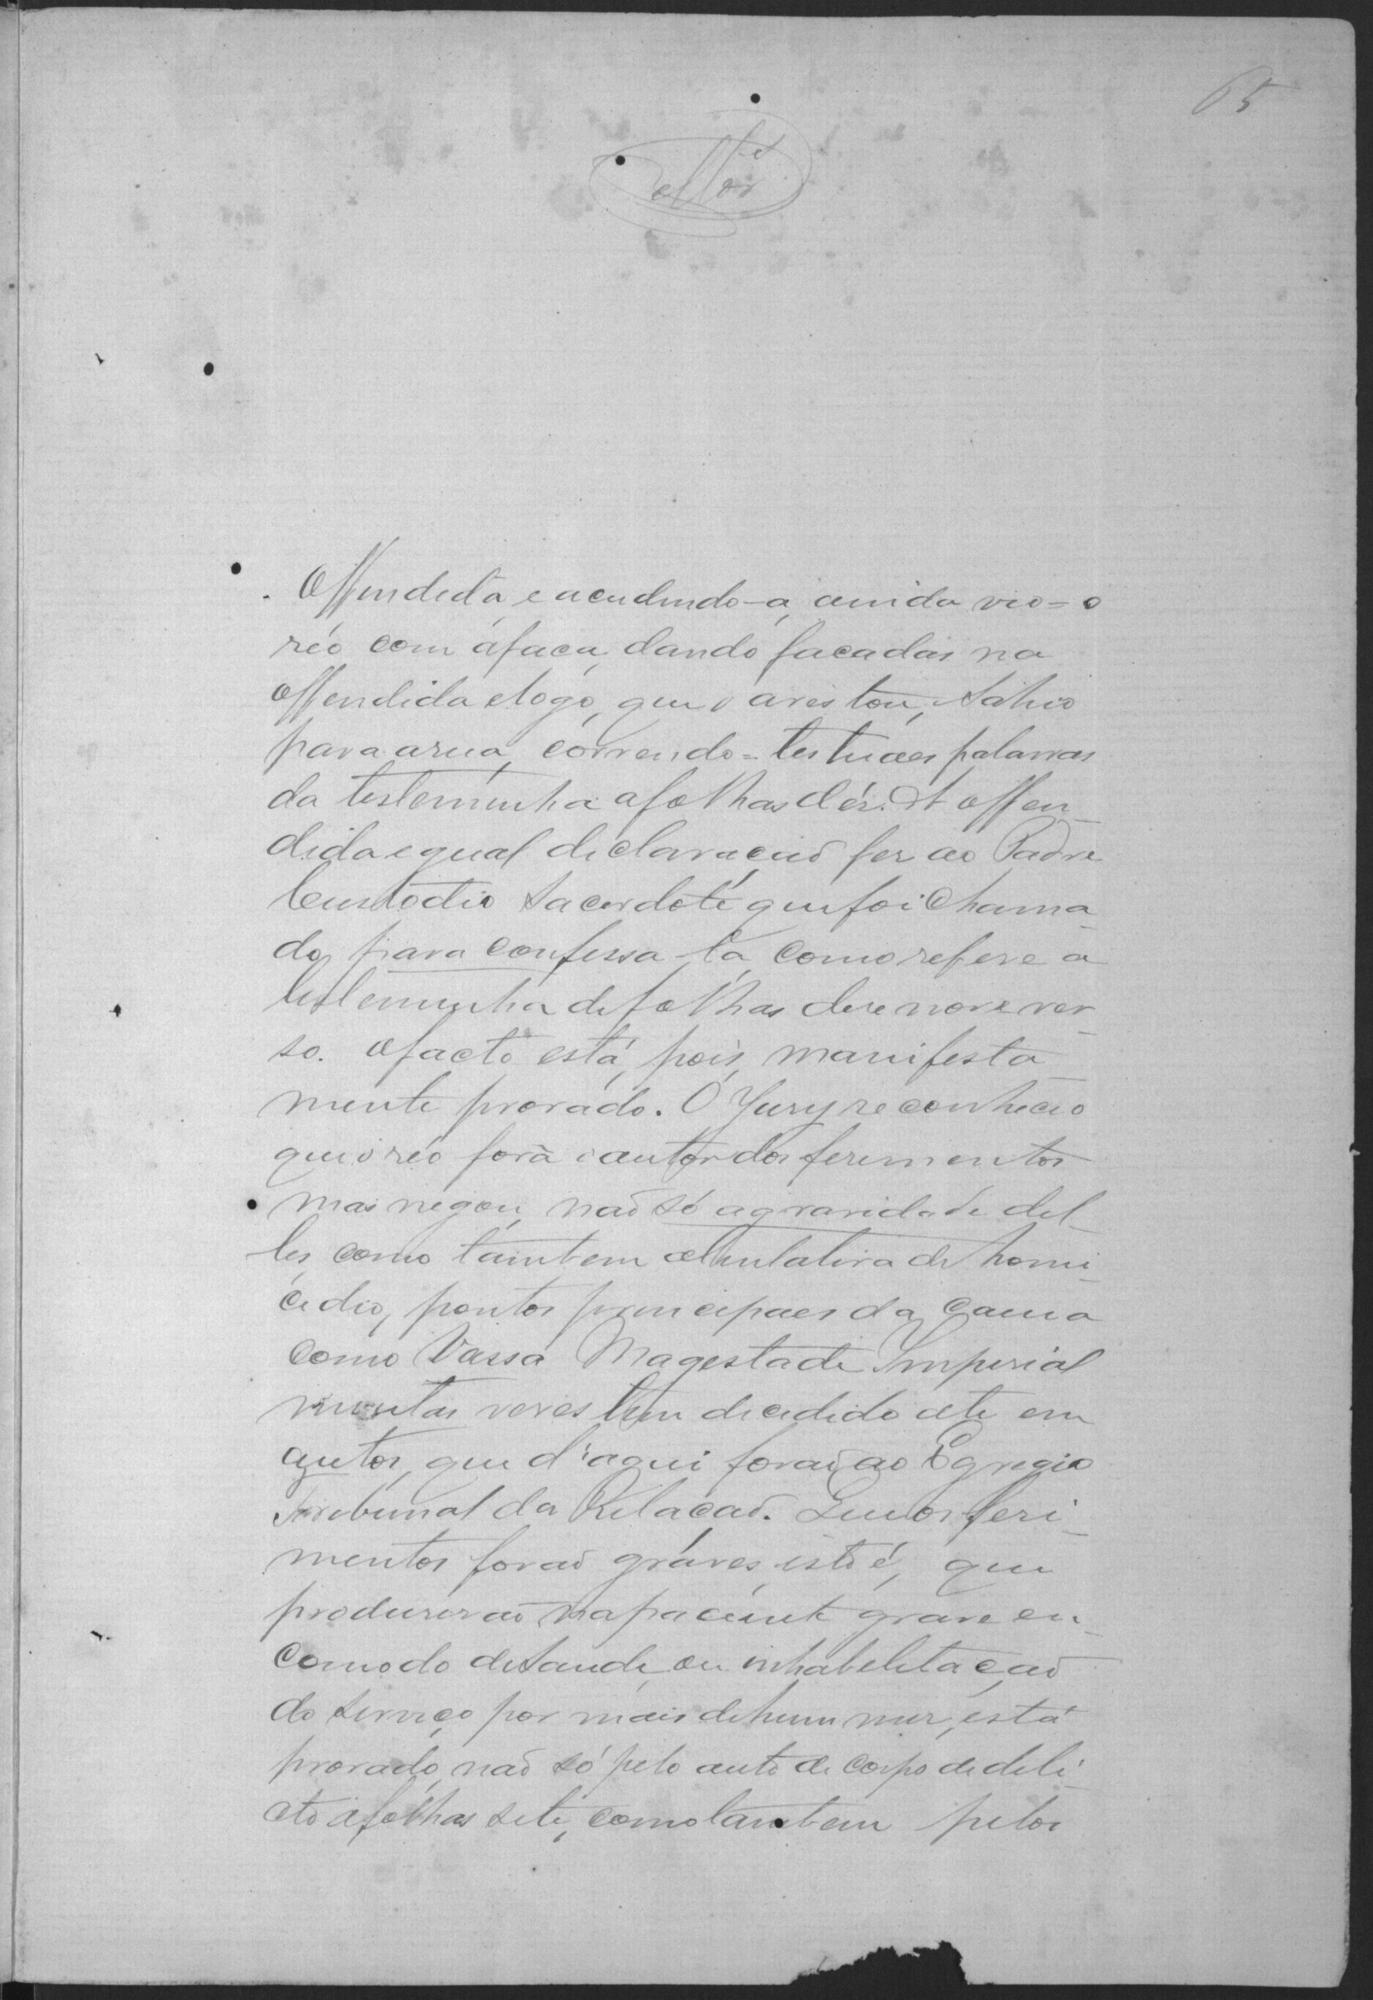 65
Offendida, e acudindo-a, ainda vio-o
réo com a faca, dando facadas na
offendida e logo, que o avistou, sahio
para a rua, correndo = textuaes palavras
da testemunha a folhas déz. A offen-
dida egual declaração fez ao Padre
Custodio Sacerdote que foi chama-
do para confessa-la, como refere a
testemunha de folhas dezenove ver-
so. O facto está, pois, manifesta-
mente provado. O Jury reconheceo
que o réo fora o autor dos ferimentos
mas negou, não só a gravidade del-
les, como tambem a tentativa de homi-
cidio, pontos principaes da causa
como Vossa Magestade Imperial
muitas vezes tem decidido até em
autos, que d'aqui forão ao Egregio
Tribunal da Relação. Que os feri-
mentos forão gráves, isto é, que
produzirão na paciente grave en-
comodo de saude, ou inhabelitação
do serviço por mais de hum mez, está
provado, não só pelo auto de corpo de deli-
cto a folhas sete, como tambem pelos